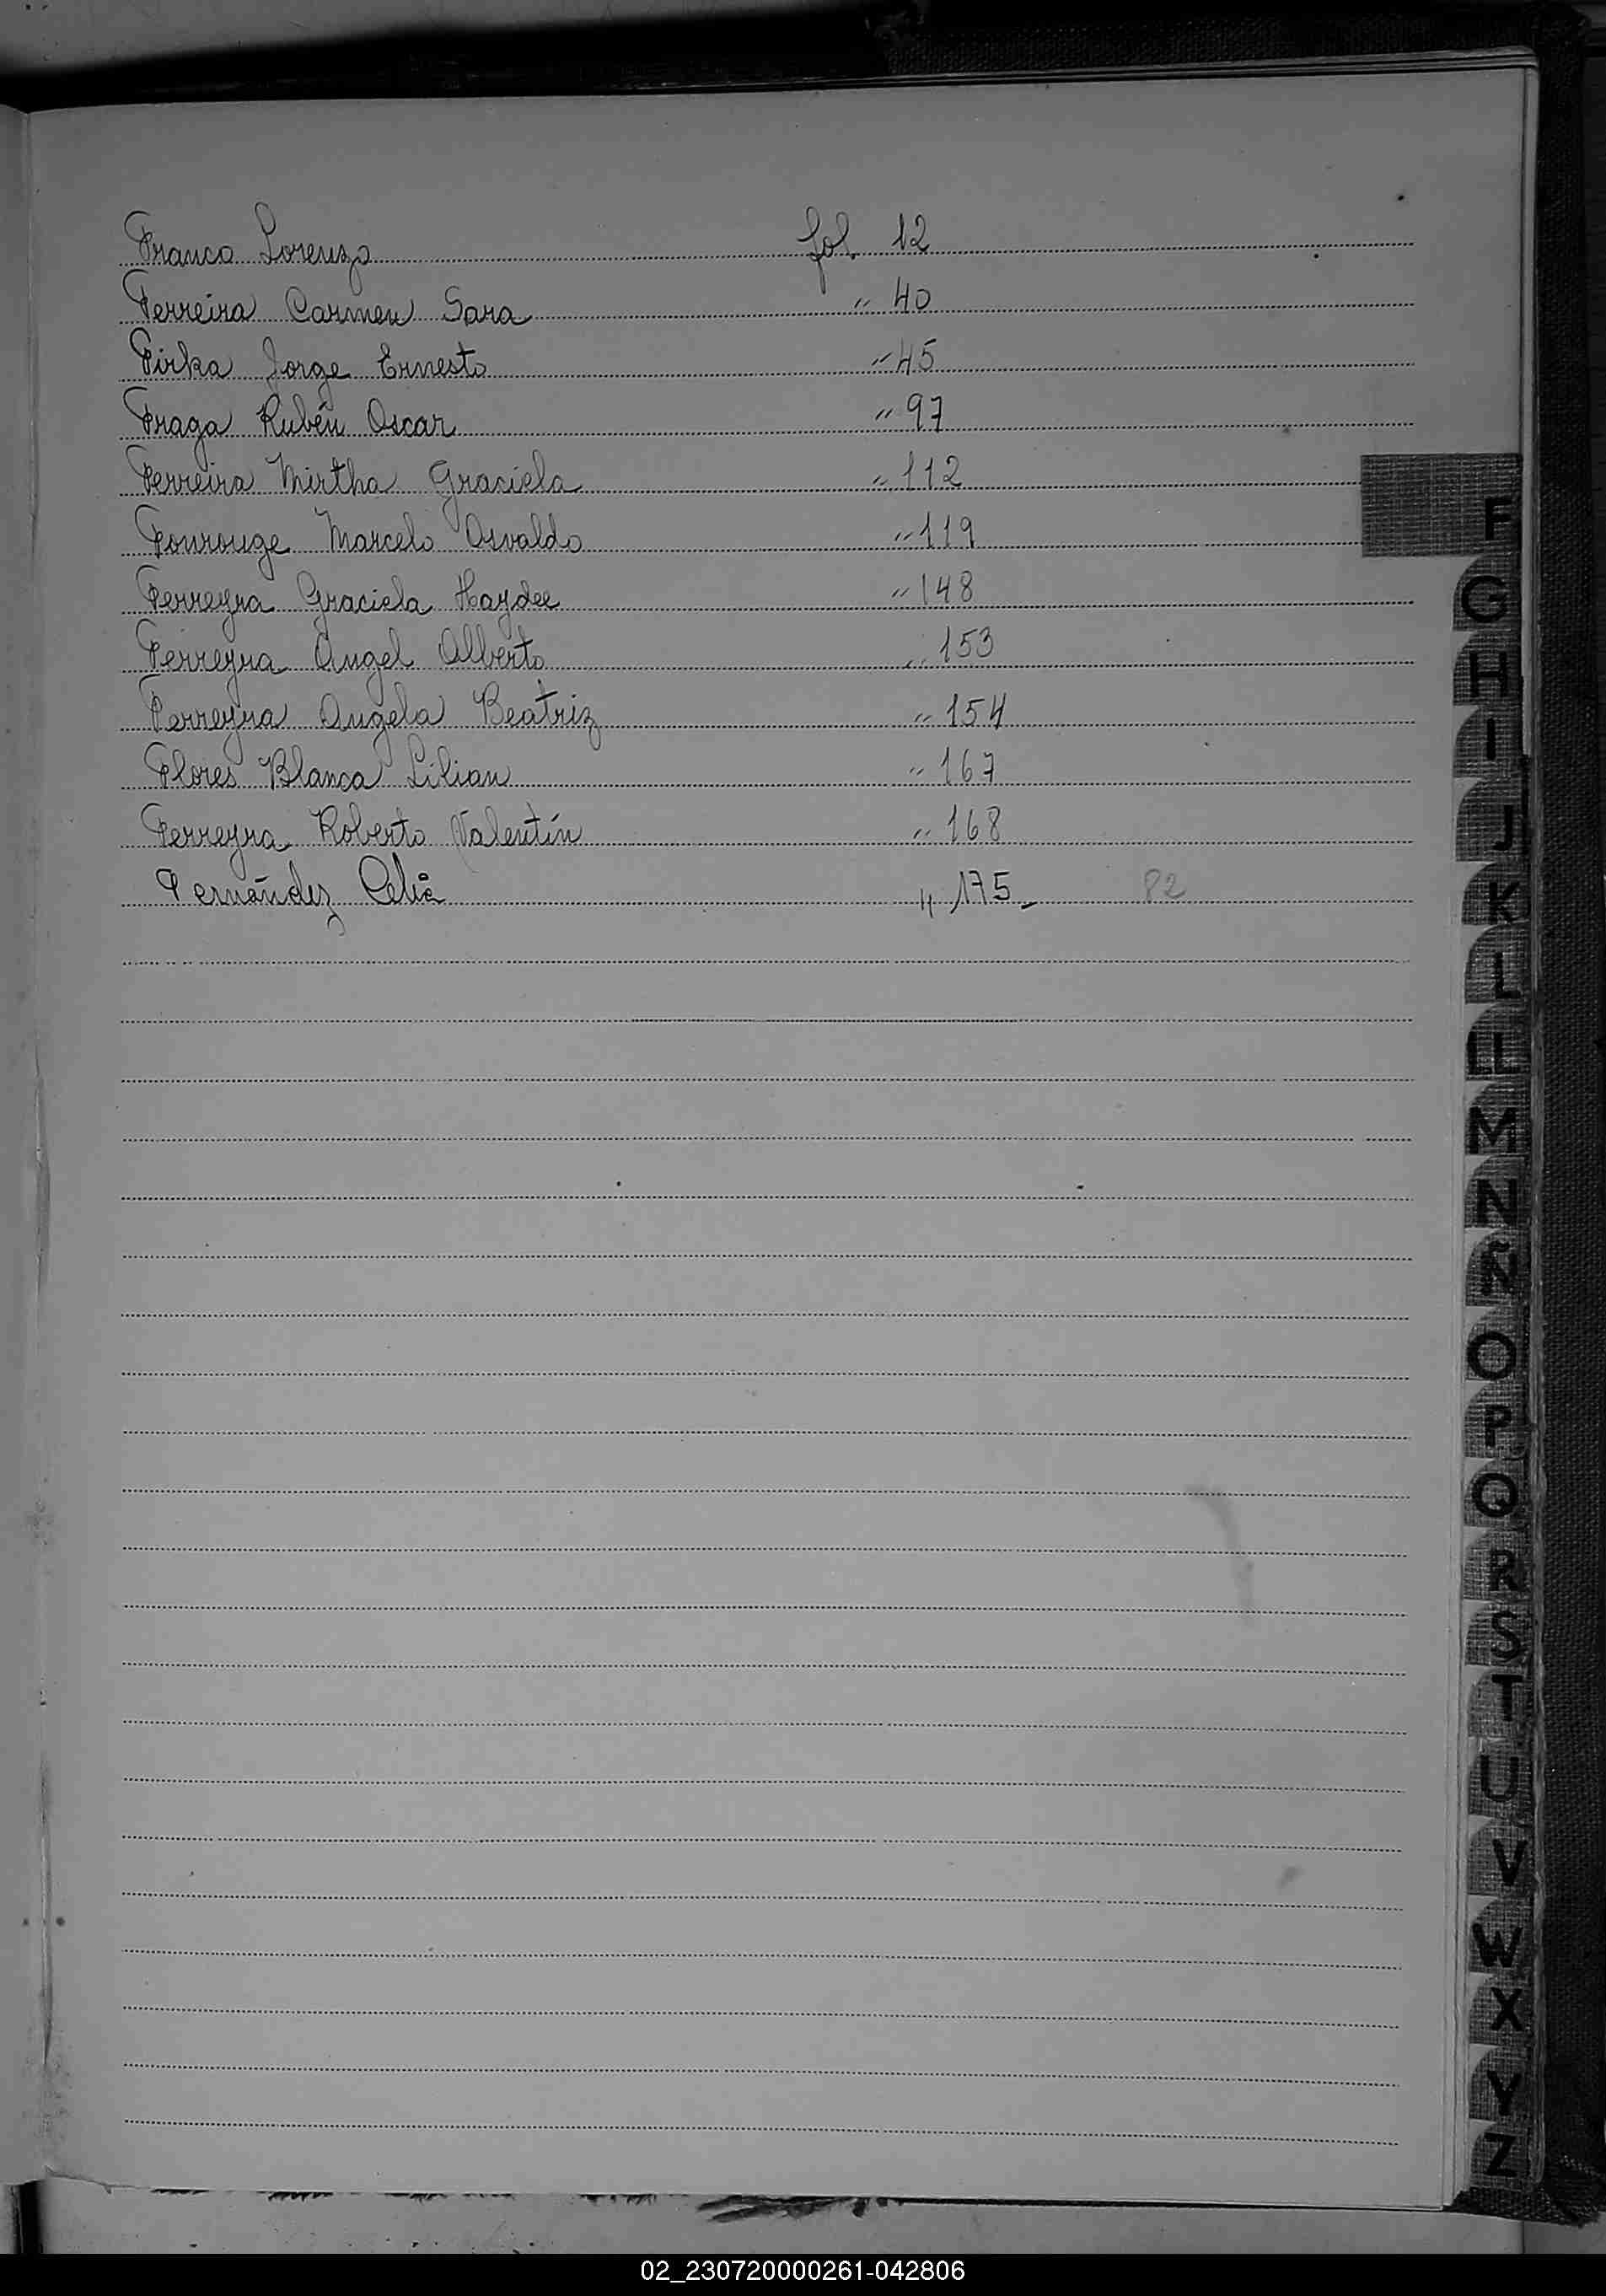 Franco Lorenzo fol. 12
Ferreira Carmen Sara " 40
Firka Jorge Ernesto " 45
Fraga Rubén Oscar " 97
Ferreira Mirtha Graciela " 112
Fourouge Marcelo Osvaldo " 119
Ferreyra Graciela Haydee " 148
Ferreyra Angel Alberto " 153
Ferreyra Angela Beatriz " 154
Flores Blanca Lilian " 167
Ferreyra Roberto Valentín " 168
Fernández Celia " 175- 82
F
G
H
I
J
K
L
LL
M
N
Ñ
O
P
Q
R
S
T
U
V
W
X
Y
Z
02_230720000261-042806